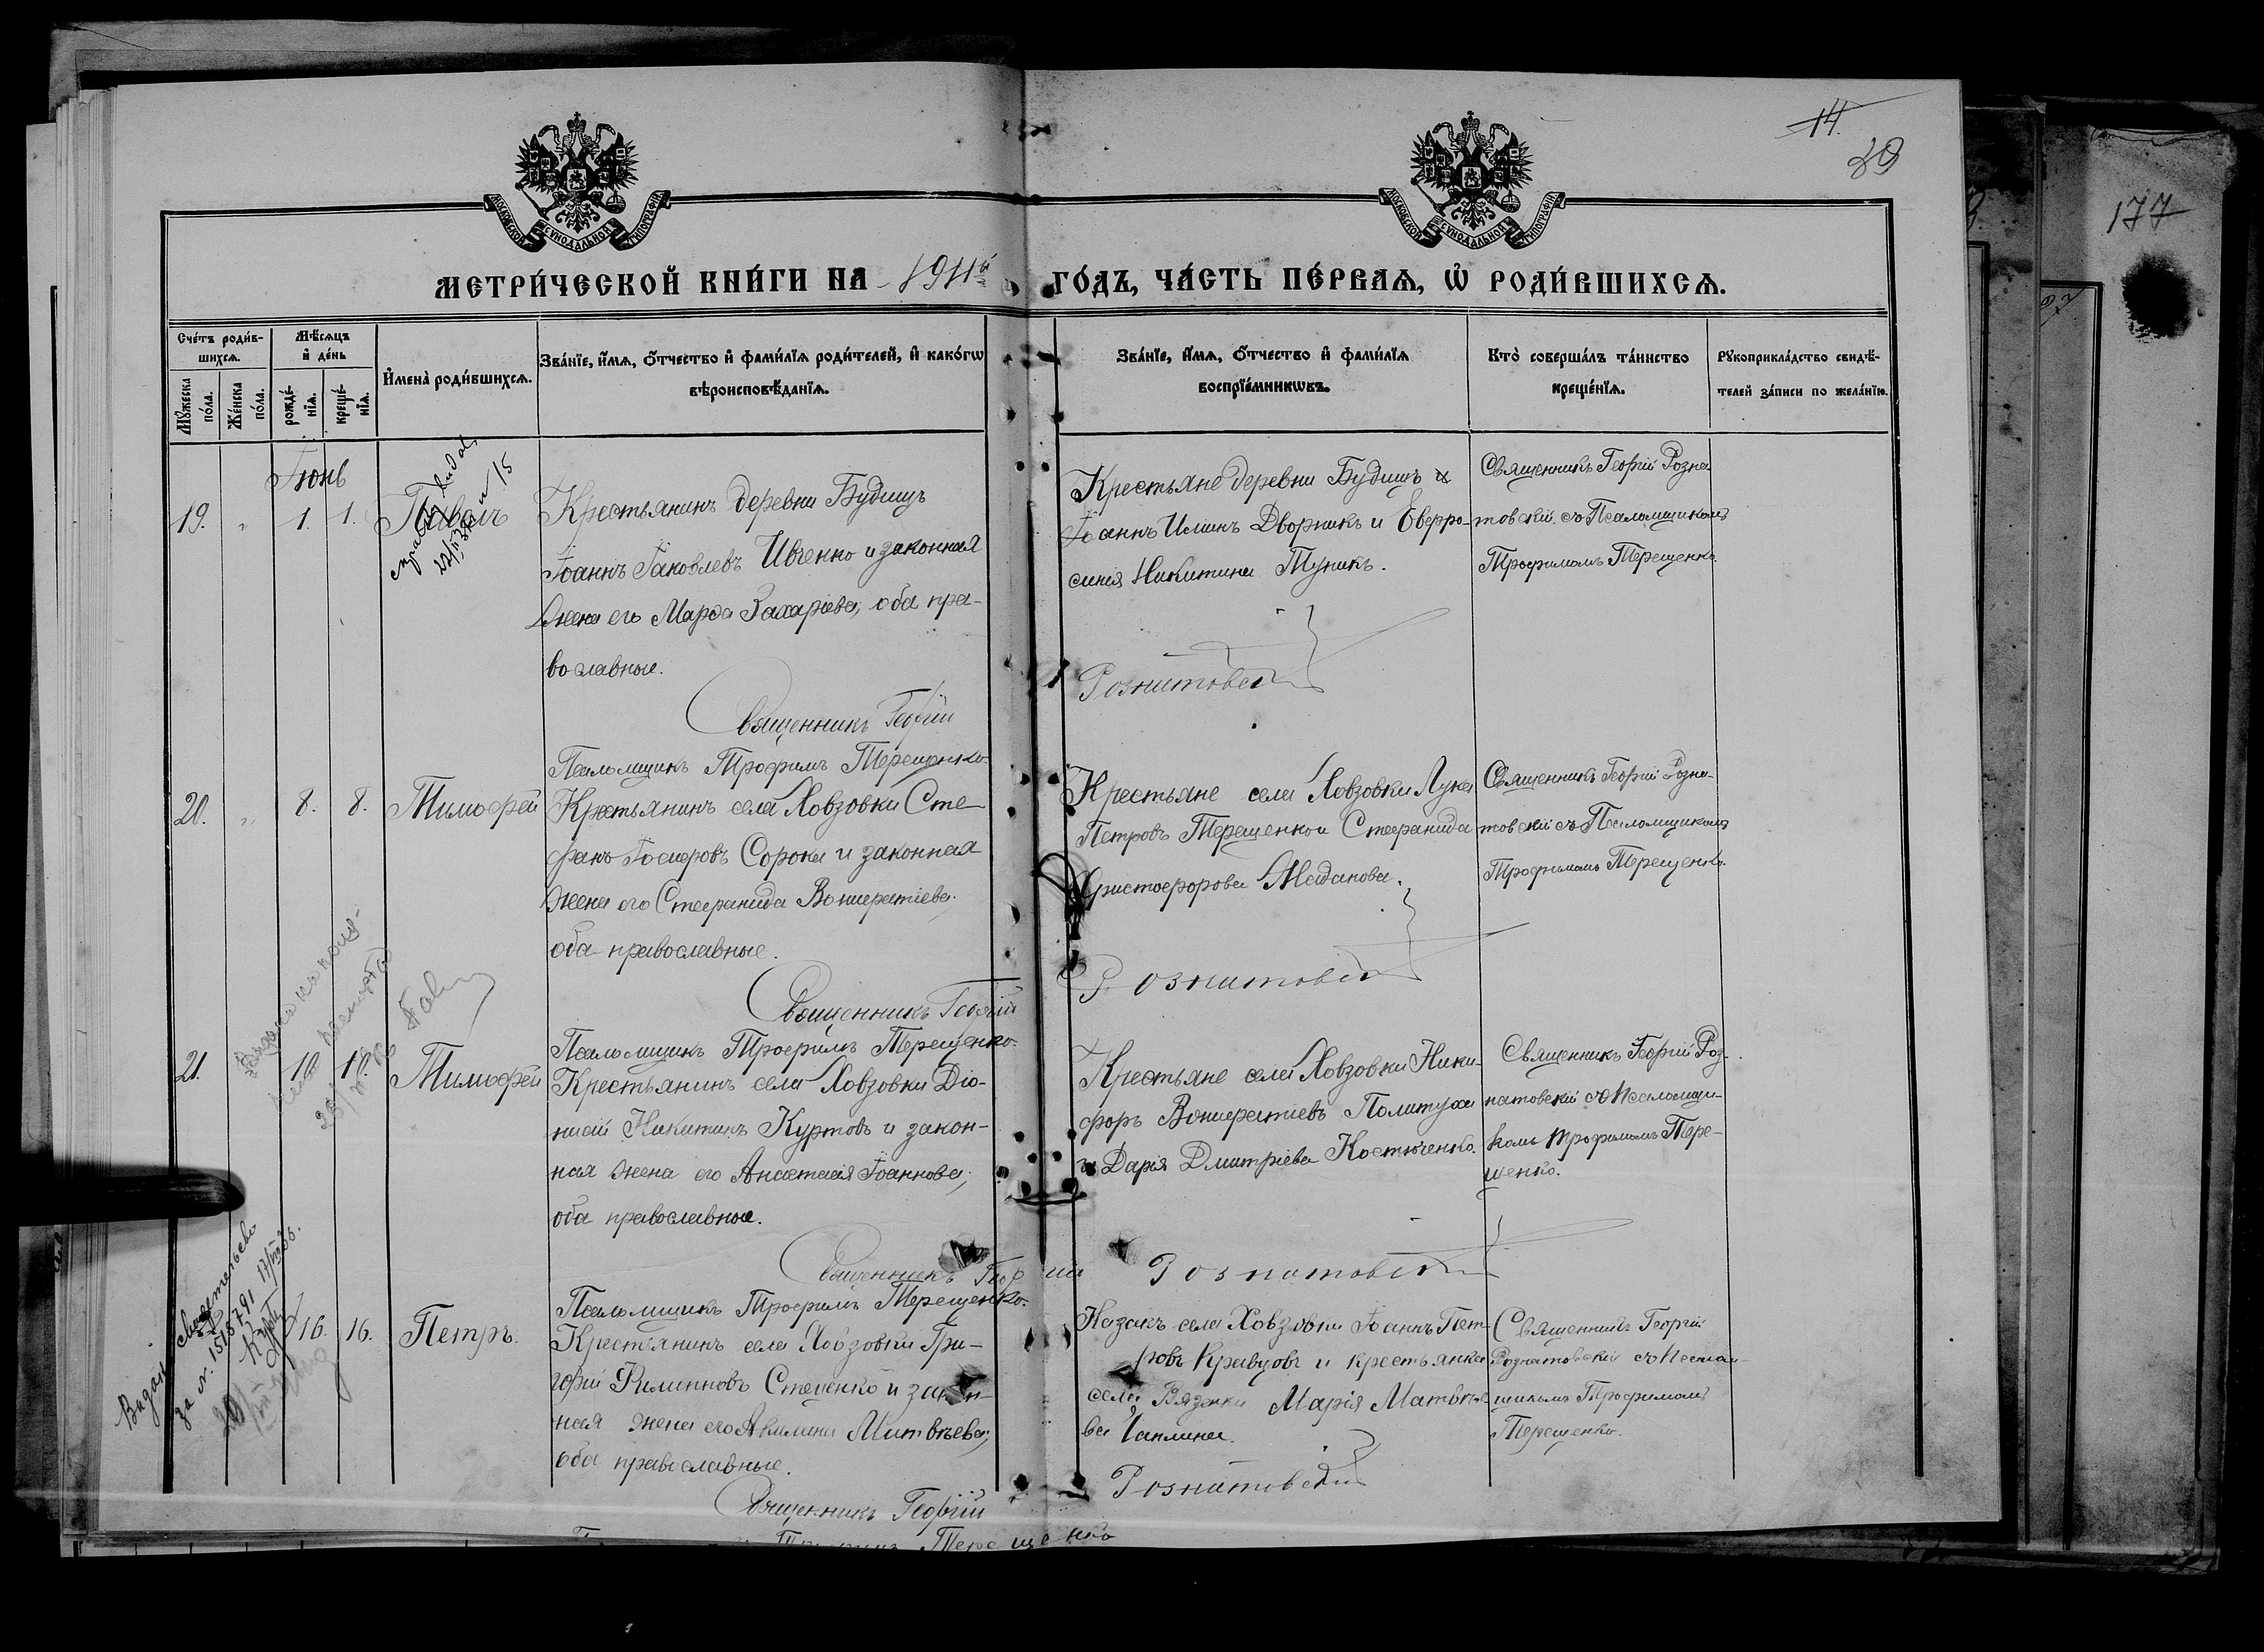 14.
39
177
МОСКОВСКОЙ СУНОДАЛЬНОЙ ТИПОГРАФІИ
МОСКОВСКОЙ СУНОДАЛЬНОЙ ТИПОГРАФІИ
МЕТРИ́ЧЕСКОЙ КНИ́ГИ НА 1911й ГО́ДЪ, ЧА́СТЬ ПЕ́РВАѦ, Ѡ҆ РОДИ́ВШИХСѦ.
Сче́тъ роди́вшихсѧ.
Мꙋ́жеска по́ла.
Же́нска по́ла.
Мѣ́сѧцъ и҆ де́нь
рожде́нїѧ.
креще́нїѧ.
И҆мена̀ роди́вшихсѧ.
Зва́нїе, и҆́мѧ, ѻ҆́тчество и҆ фами́лїѧ роди́телей, и҆ како́гѡ
вѣроисповѣ́данїѧ.
Зва́нїе, и҆́мѧ, ѻ҆́тчество и҆ фами́лїѧ
воспрїе́мникѡвъ.
Кто̀ соверша́лъ та́инство
креще́нїѧ.
Рꙋкоприкла́дство свидѣ́-
телей за́писи по жела́нїю.
Іюнь
19. „ 1. 1. Павелъ
Крестьянинъ деревни Будищъ
Іоаннъ Іаковлевъ Ивченко и законная
жена его Марѳа Захаріева, оба пра-
вославные.
Священникъ Георгій
Псаломщикъ Трофимъ Терещенко.
Крестьяне деревни Будищъ
Іоаннъ Илiинъ Дворникъ и Евфро-
синія Никитина Тупикъ.
Рознатовскій
Священникъ Георгій Розна-
товскій съ Псаломщикомъ
Трофимомъ Терещенко.
20. „ 8. 8. Тимофей
Крестьянинъ села Ховзовки Сте-
фанъ Іосифовъ Сорока и законная
жена его Стефанида Вонифатіева,
оба православные.
Священникъ Георгій
Псаломщикъ Трофимъ Терещенко.
Крестьяне села Ховзовки Лука
Петровъ Терещенко и Стефанида
Христофорова Жаданова.
Рознатовскій
Священникъ Георгій Розна-
товскій съ Псаломщикомъ
Трофимомъ Терещенко.
21. 10. 10. Тимофей
Крестьянинъ села Ховзовки Діо-
нисій Никитинъ Куртовъ и закон-
ная жена его Анастасія Іоаннова,
оба православные.
Священникъ Георгій
Псаломщикъ Трофимъ Терещенко.
Крестьяне села Ховзовки Ники-
форъ Вонифатіевъ Политуха
и Дарія Дмитріева Костюченко.
Рознатовскій
Священникъ Георгій Роз-
натовскій съ Псаломщи-
комъ Трофимомъ Тере-
щенко.
Видано свидетельсво
за №. 1518791
16. 16. Петръ.
Крестьянинъ села Ховзовки Гри-
горій Филипповъ Степенко и закон-
ная жена его Акилина Матвѣева;
оба православные.
Священникъ Георгій
Терещенко
Казакъ села Ховзовки Іоаннъ Пет-
ровъ Кравцовъ и крестьянка
села Вязенки Марія Матвѣе-
ва Чаплина.
Рознатовскій
Священникъ Георгій
Рознатовскій съ Псалом-
щикомъ Трофимомъ
Терещенко.